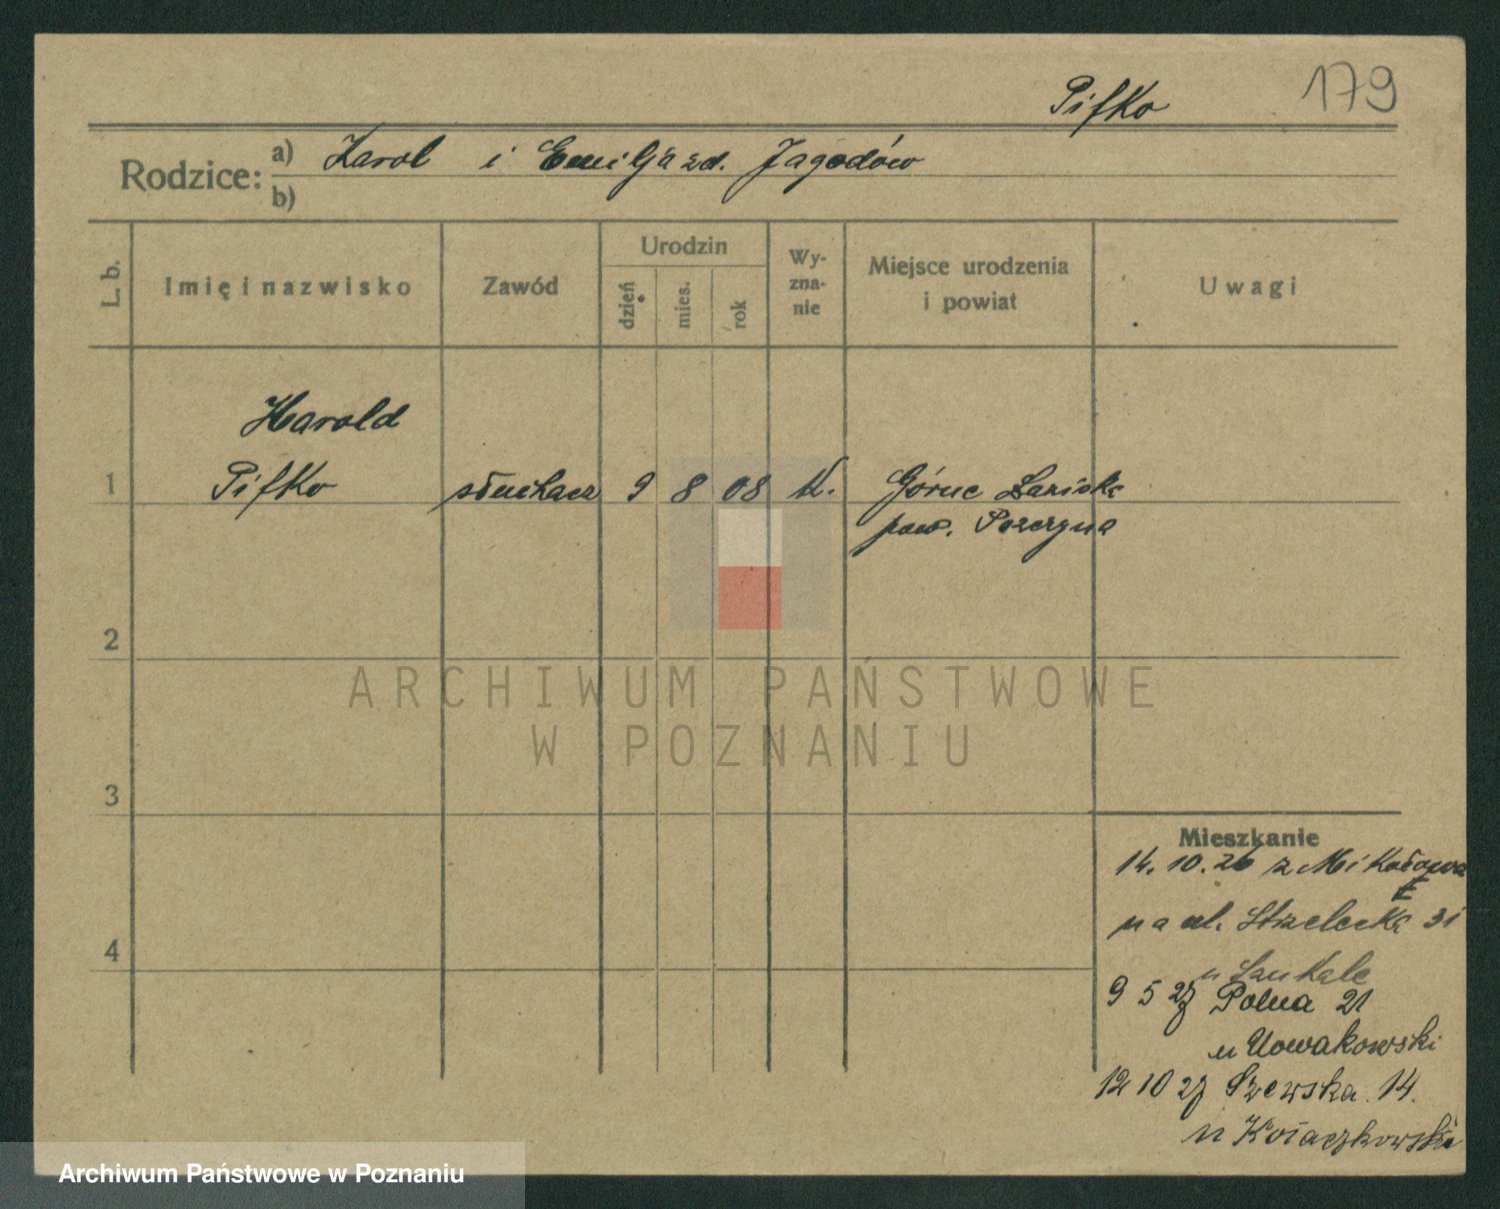 Pifko 179
Rodzice: a) Karol i Emilja zd. Jagodów
b)
L. b. Imię i nazwisko Zawód Urodzin dzień mies. rok Wyzna-nie Miejsce urodzenia i powiat Uwagi
Harold
1 Pifko słuchacz 9 8 08 K. Górne Łaziska
pow. Pszczyna
2
ARCHIWUM PAŃSTWOWE
W POZNANIU
3
Mieszkanie
14. 10. 26 z Mikołowa
na ul. Strzelecką 31
4
u
9 5 27 Polna 21
u Nowakowski
12 10 27 Szewska 14.
u
Archiwum Państwowe w Poznaniu